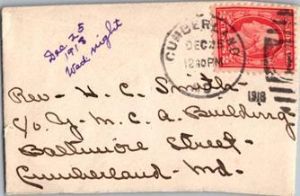 Dec 25
1918
Wed night
CUMBERLAND
DEC 26
12 30 PM
1918
Rev. H. C. Smith
c/o Y. M. C. A Building
Baltimore Street.
Cumberland Md.